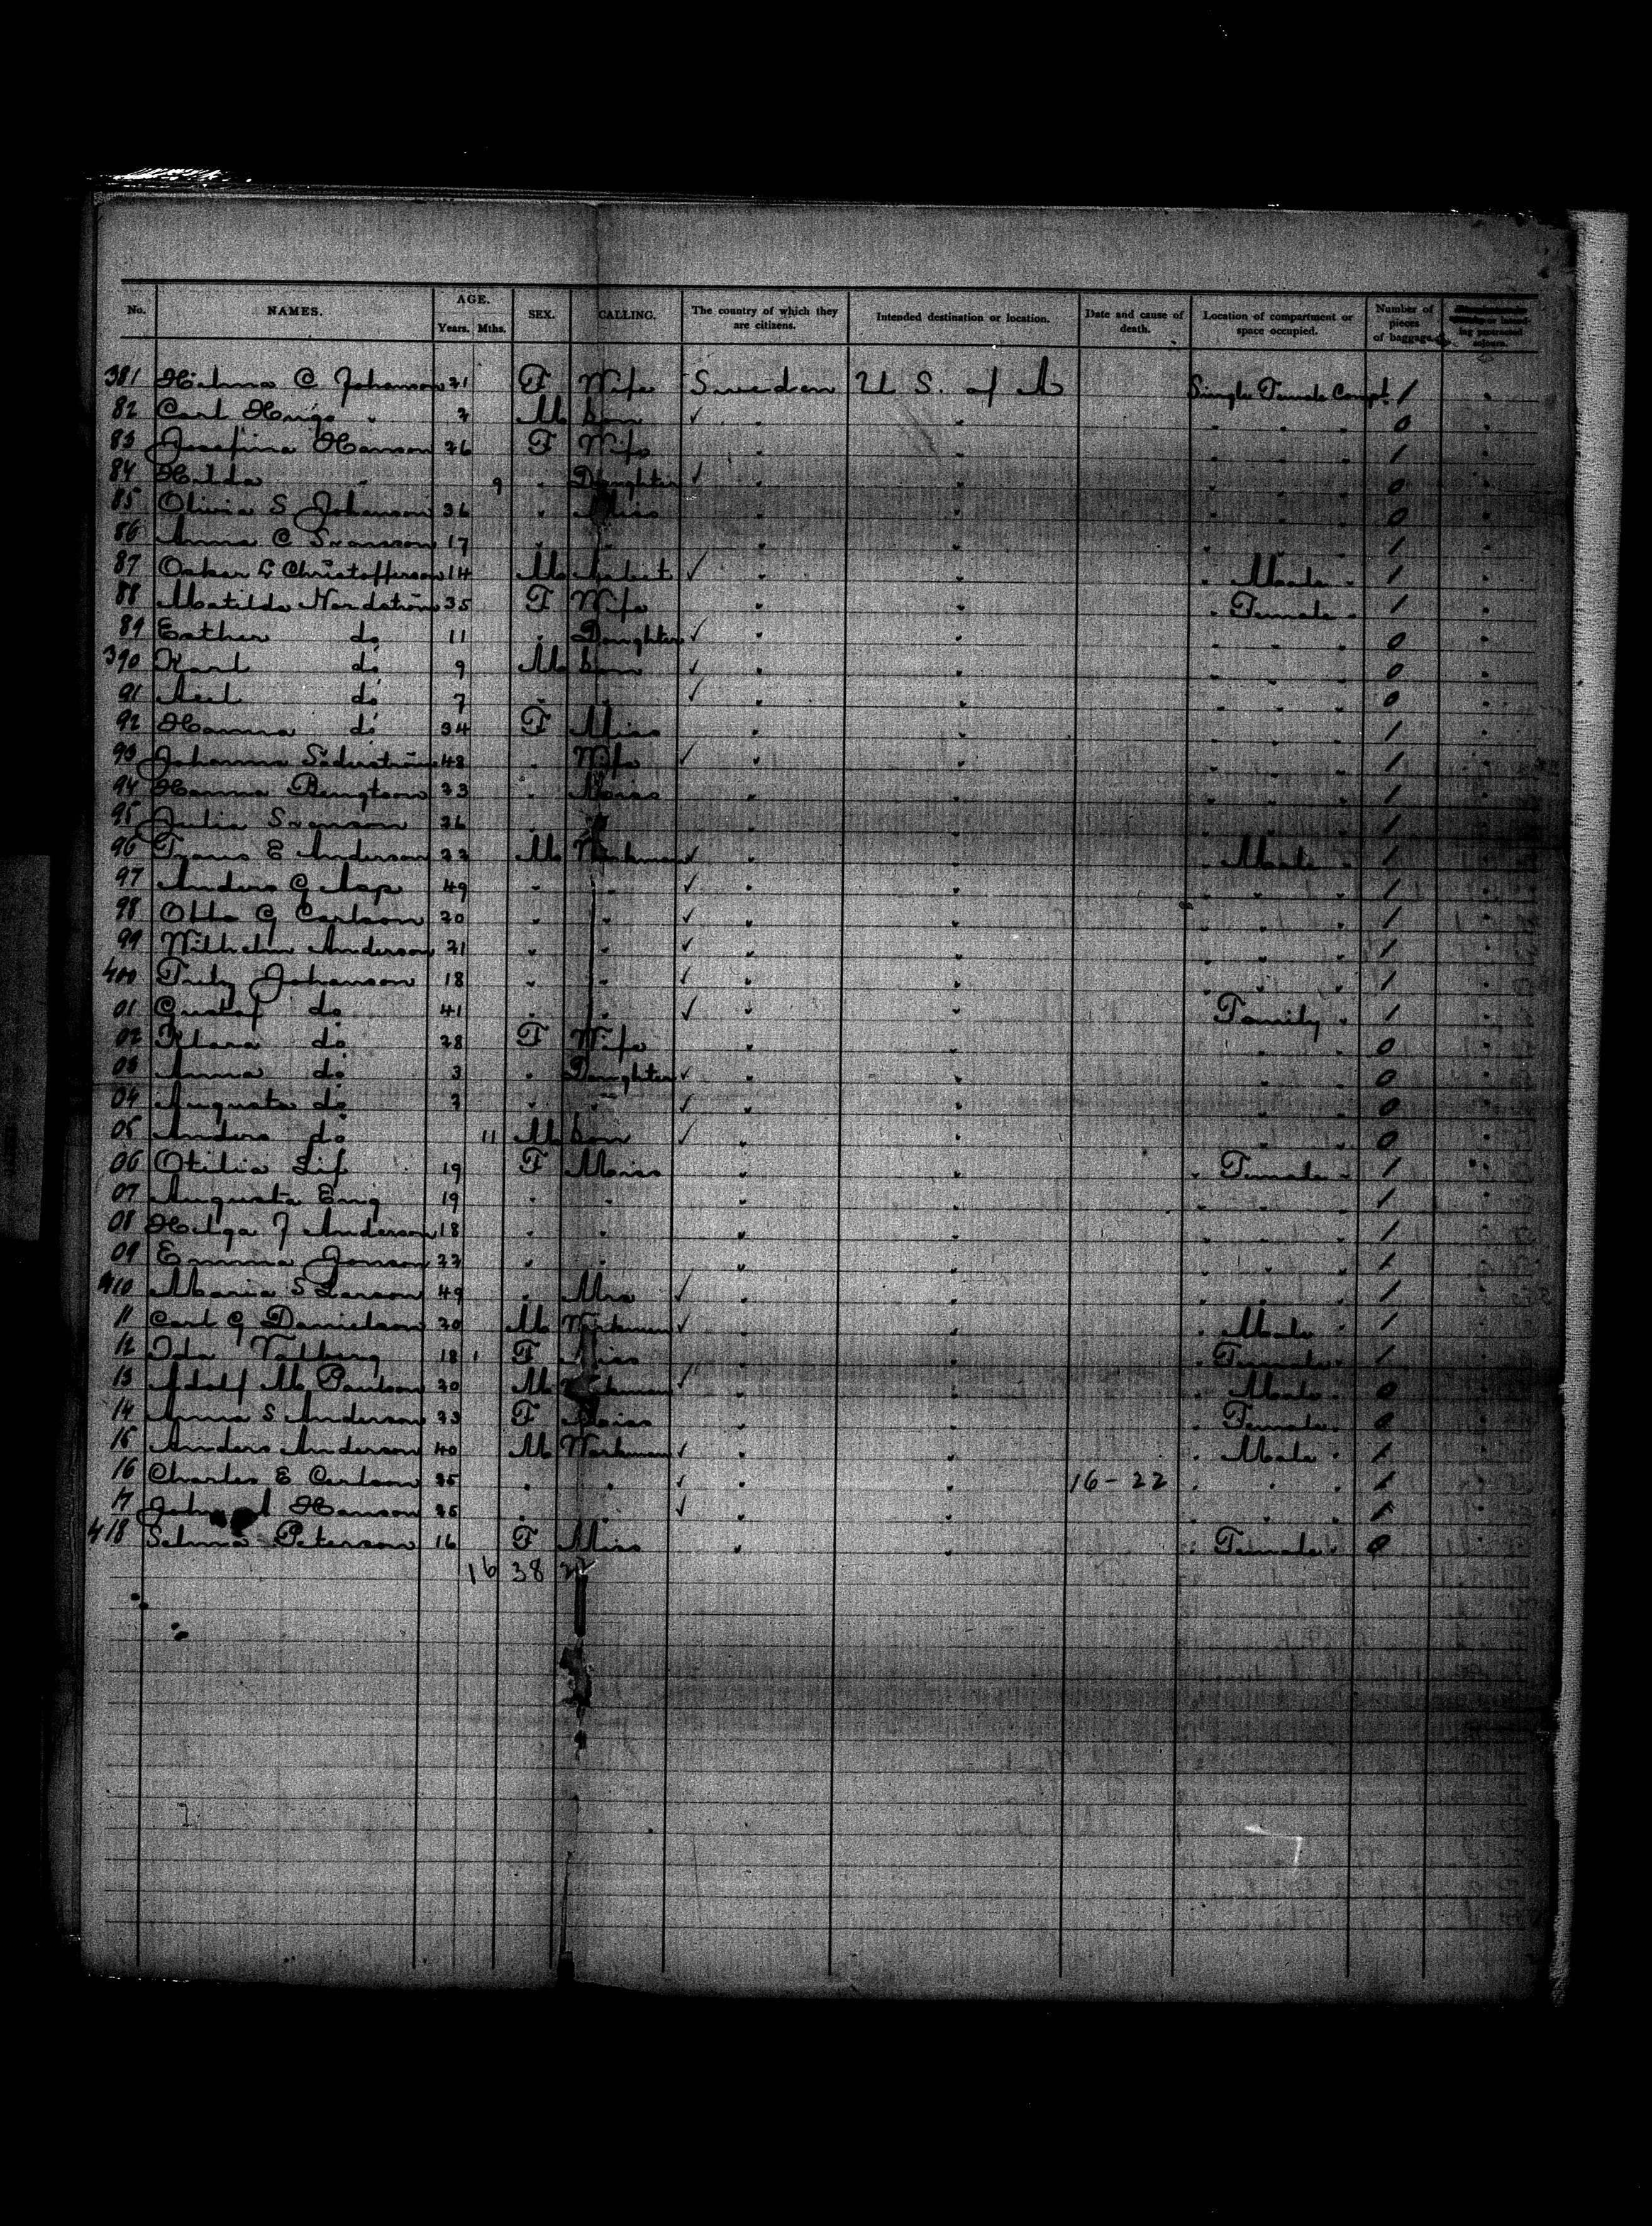 No. NAMES. AGE. Years. Mths. SEX. CALLING. The country of which they are citizens. Intended destination or location. Date and cause of death. Location of compartment or space occupied. Number of pieces of baggage.
381 Hilma C Johanson 21 F Wife Sweden U S. of A Single Female Compt. 1
82 Carl Hugo " 2 M Son ✓ " " " " " 0
83 Josefina Hanson 26 F Wife " " " " " 1
84 Hilda " 9 " Daughter ✓ " " " " " 0
85 Olivia S Johanson 36 " Miss " " " " " 0
86 Anna C Svansson 17 " " " " " " " 1
87 Oskar G Christofferson 14 M ✓ " " " Male " 1
88 Matilda Nordström 35 F Wife " " " Female " 1
89 Esther do 11 " Daughter ✓ " " " " " 0
390 Karl do 9 M Son ✓ " " " " " 0
91 Axel do 7 " " ✓ " " " " " 0
92 Hanna do 34 F Miss " " " " " 1
93 Johanna Söderström 48 " Wife ✓ " " " " " 1
94 Hanna Bengtson 23 " Miss " " " " " 1
95 Julia Svenson 26 " " " " " " " 1
96 E Anderson 22 M Workman ✓ " " " Male " 1
97 Anders G Asp 49 " " ✓ " " " " " 1
98 Otto G Carlson 20 " " ✓ " " " " " 1
99 Wilhelm Anderson 21 " " ✓ " " " " " 1
400 Johanson 18 " " ✓ " " " " " 1
01 Gustaf do 41 " " ✓ " " Family " 1
02 Klara do 28 F Wife " " " " 0
03 Anna do 3 " Daughter ✓ " " " " 0
04 Augusta do 2 " " ✓ " " " " 0
05 Anders do 11 M Son ✓ " " " " 0
06 Otilia Lif 19 F Miss " " " Female " 1
07 Augusta Eng 19 " " " " " " " 1
08 Helga J Anderson 18 " " " " " " " 1
09 Emma Jonson 22 " " " " " " " 1
410 Maria S Larson 49 " Mrs ✓ " " " " " 1
11 Carl G Danielson 20 M Workman ✓ " " " Male " 1
12 Ida 18 F Miss " " " Female " 1
13 Adolf M Paulson 20 M Workman ✓ " " " Male " 0
14 Anna S Anderson 23 F Miss " " " Female " 0
15 Anders Anderson 40 M Workman ✓ " " " Male " 1
16 Charles E Carlson 25 " " ✓ " " 16-22 " " " 1
17 Hanson 25 " " ✓ " " " " " 1
418 Selma Peterson 16 F Miss " " " Female " 0
16 38 22